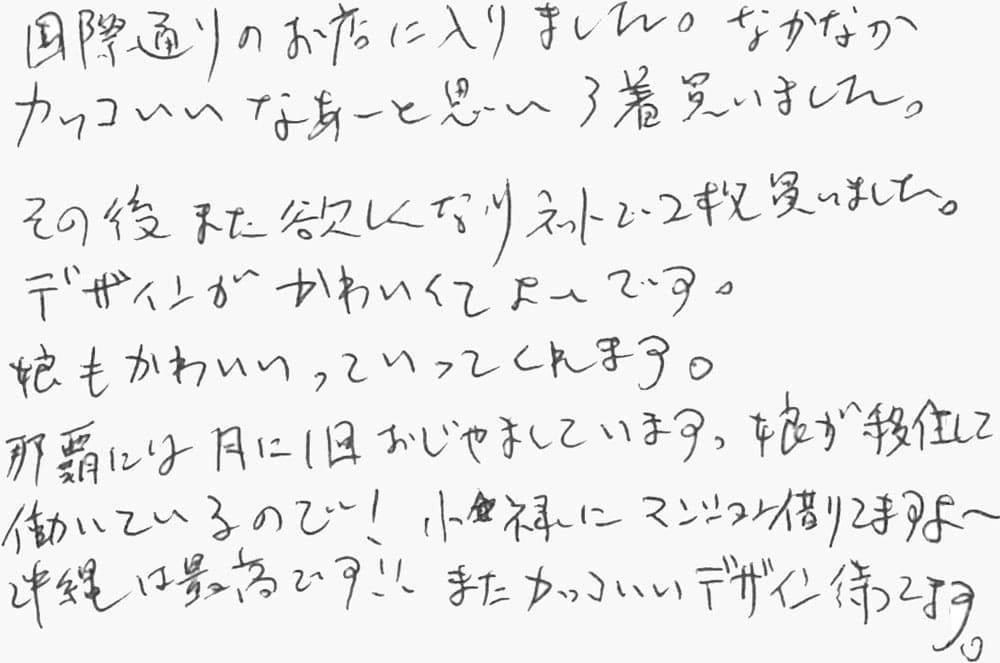 国際通りのお店に入りました。なかなか
カッコいいなあーと思い3着買いました。
その後また欲しくなりネットで2枚買いました。
デザインがかわいくてよいです。
娘もかわいいっていってくれます。
那覇には月に1回おじゃましています。娘が移住して
働いているので!小禄にマンション借りてますよ〜
沖縄は最高です!!またカッコいいデザイン待ってます。